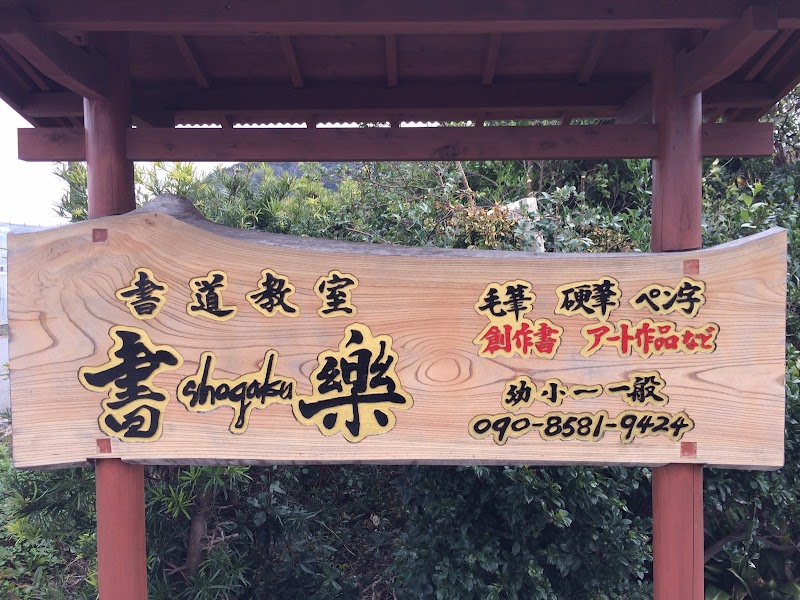 書道教室
書 shogaku 樂
毛筆 硬筆 ペン字
創作書 アート作品など
幼小ー一般
090-8581-9424